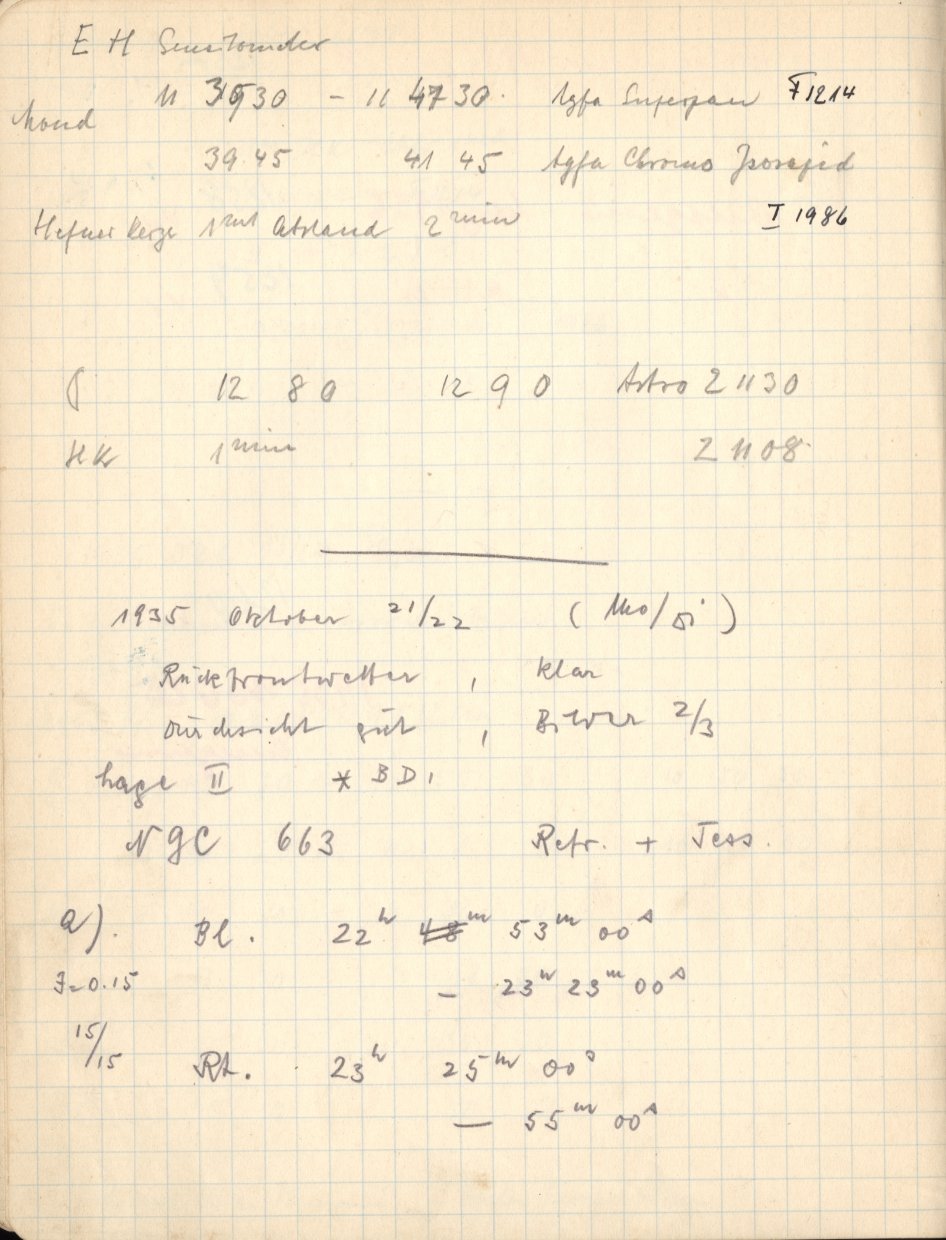 E H Sensitometer
Mond 11 3930 - 11 47 30. Agfa Superpan F 1214
39 45 41 45 Agfa Chromo Isorapid
Hefner Kerze 1 mt Abstand 2 min I 1986
12 8 0 12 9 0 Astro Z 1130
HK 1 min Z 1108
1935 Oktober 21/22 (Mo/Di)
Rückfrontwetter, klar
Durchsicht gut, Bilder 2/3
Lage II * BD 1
NGC 663 Refr. + Tess.
a). Bl. 22h 48m 53m 00s
J=0.15 — 23h 23m 00s
15/15 Rt. 23h 25m 00s
— 55m 00s